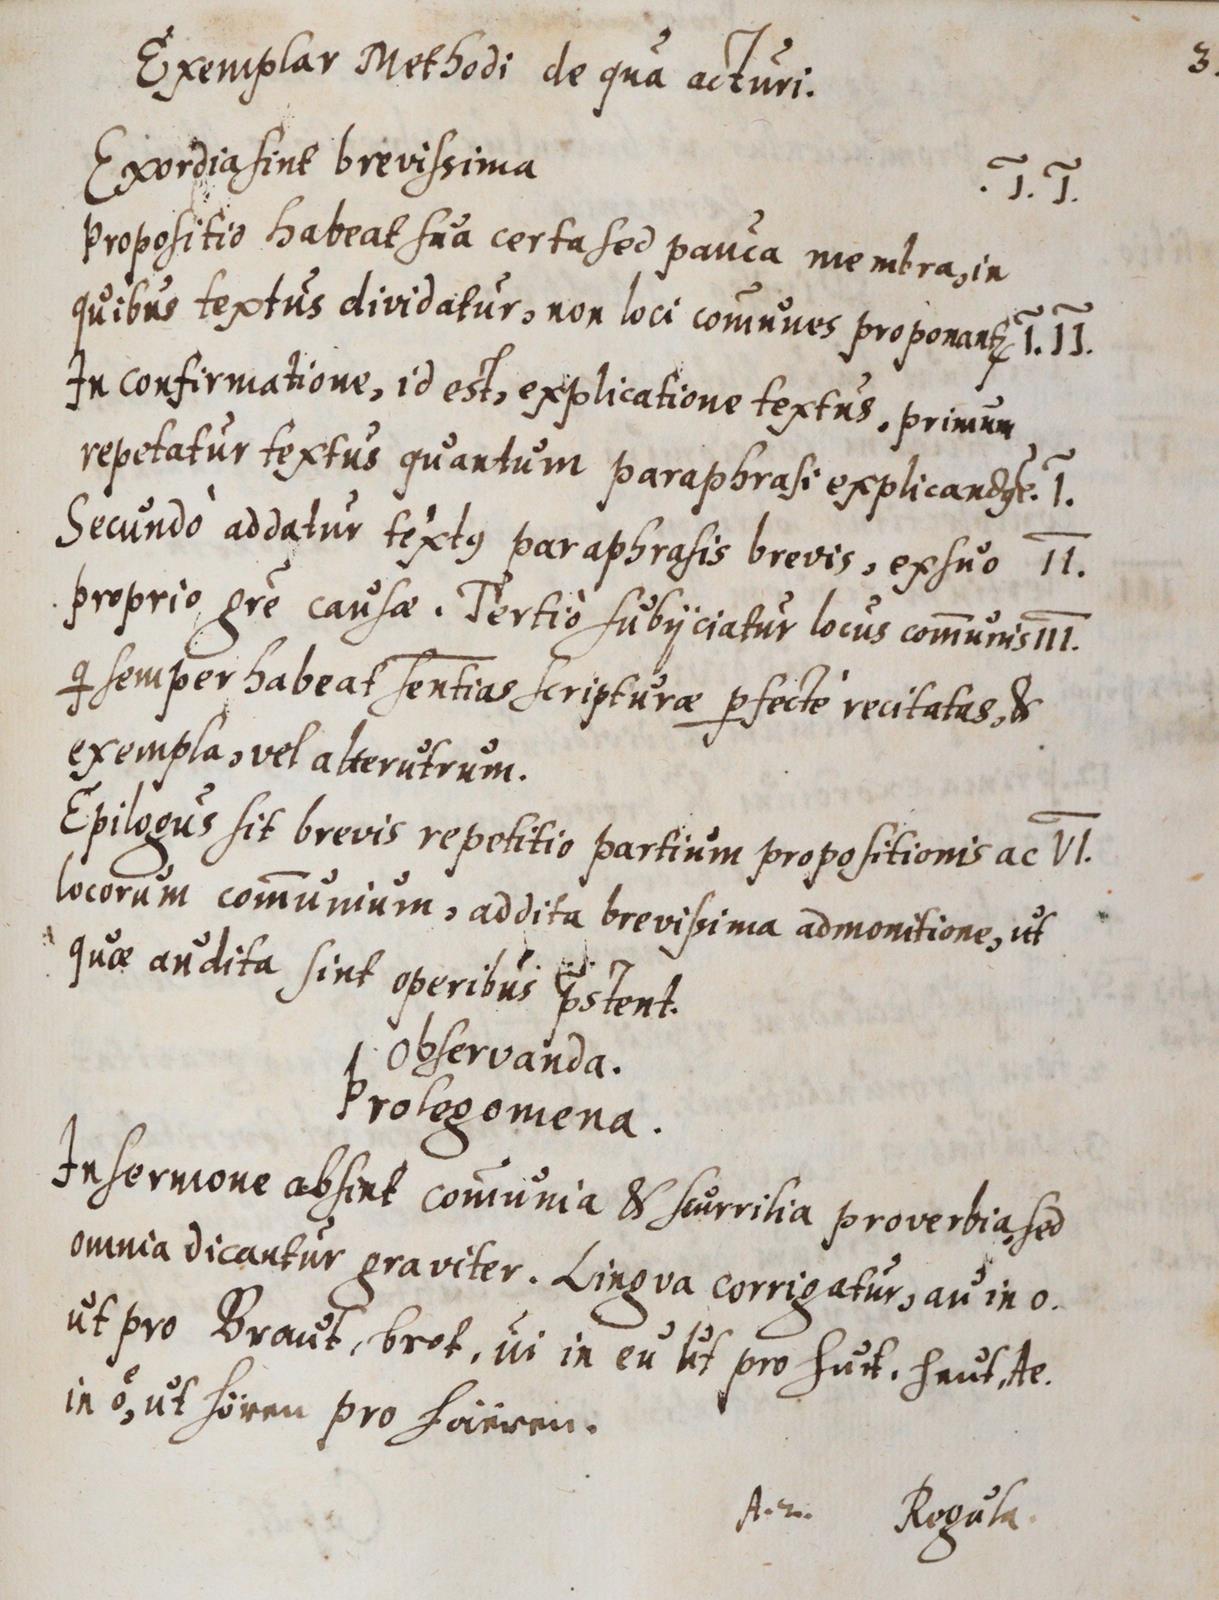 3.
Exemplar Methodi de qua acturi.
Exordia sint brevissima .I. I.
Propositio habeat sua certa sed pauca membra, in
quibus textus dividatur, non loci com̄unes proponant I. II.
In confirmatione, id est, explicatione textus, primum
repetatur textus quantum paraphrasi explicand I.
Secundò addatur textꝰ paraphrasis brevis, ex suo II.
proprio gr̄e causæ. Tertiò subijciatur locus com̄unis III.
semper habeat sent̄ias scripturæ ꝑfectè recitatas, &
exempla, vel alterutrum.
Epilogus sit brevis repetitio partium propositionis ac VI.
locorum com̄unium, addita brevissima admonitione, ut
quæ audita sint operibus p̄stent.
Observanda.
Prolegomena.
In sermone absint com̄unia & scurrilia proverbia, sed
omnia dicantur graviter. Lingva corrigatur, au in o.
ut pro Braut, brot, ui in eu ut pro huit. heut, Ae.
in oͤ, ut hören pro haieren.
A.2. Regula